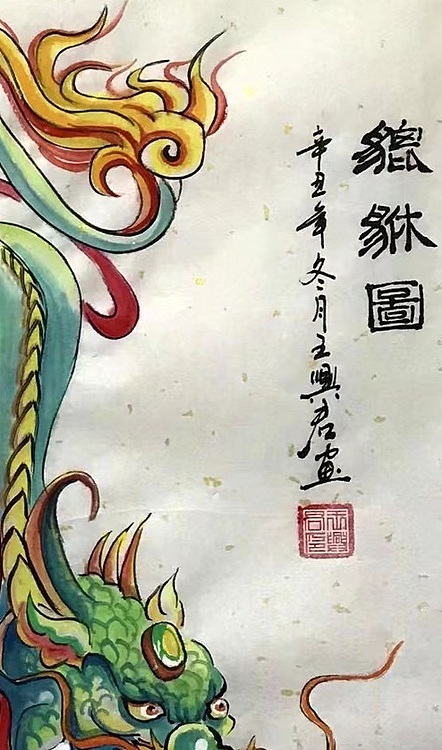 貔貅圖
辛丑年冬月王興君畫